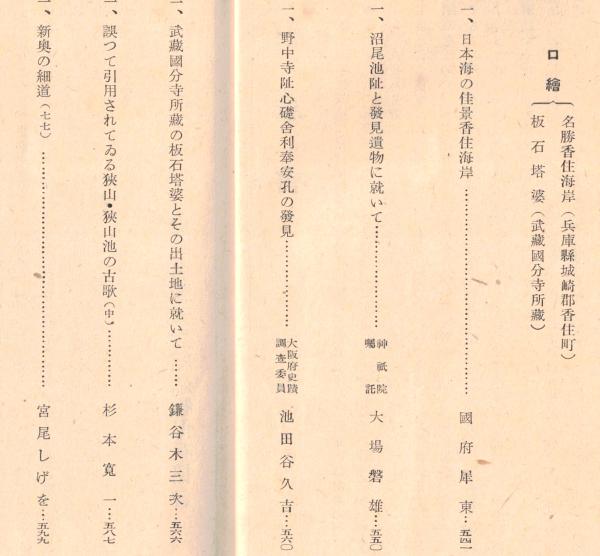 口繪
名勝香住海岸（兵庫縣城崎郡香住町）
板石塔婆（武藏國分寺所藏）
一、日本海の佳景香住海岸……國府犀東…五四一
一、沼尾池阯と發見遺物に就いて……神祇院囑託 大場磐雄…五五〇
一、野中寺阯心礎舍利奉安孔の發見……大阪府史蹟調査委員 池田谷久吉…五六〇
一、武藏國分寺所藏の板石塔婆とその出土地に就いて……鎌谷木三次…五六六
一、誤つて引用されてゐる狹山・狹山池の古歌（中）……杉本寬一…五八七
一、新奧の細道（七七）……宮尾しげを…五九九